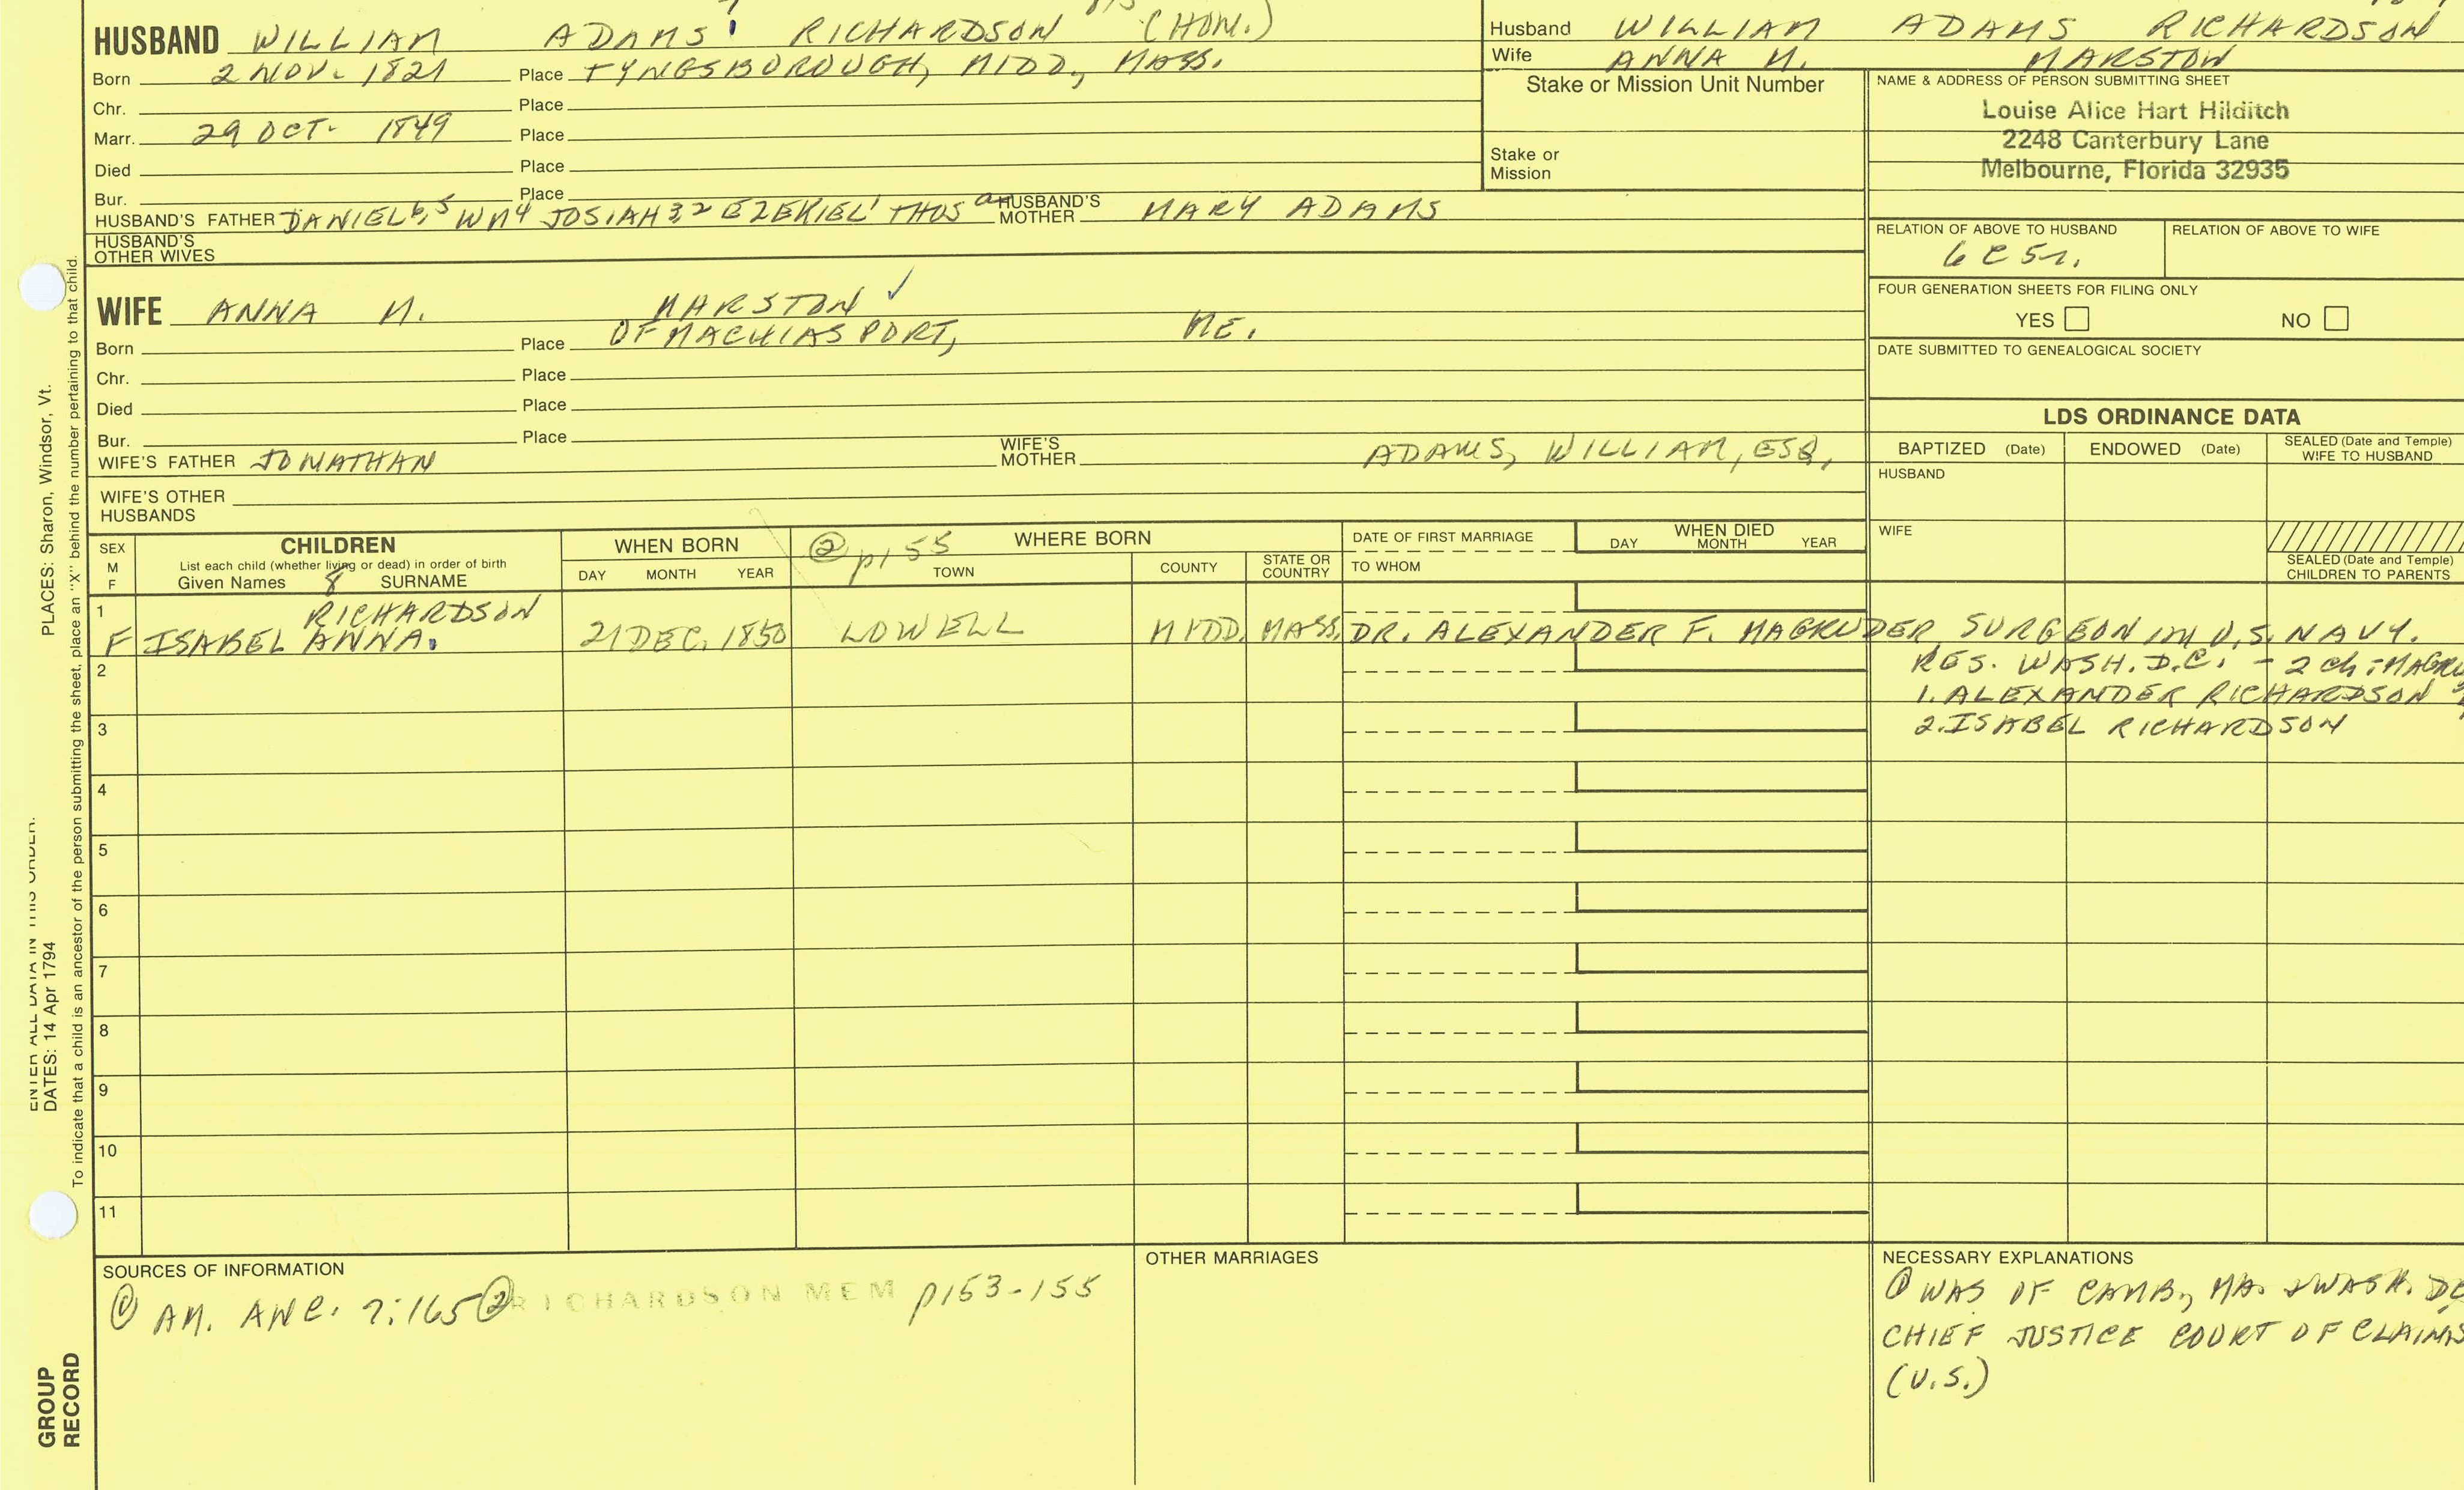 HUSBAND WILLIAM ADAMS RICHARDSON (HON.)
Born 2 NOV. 1821 Place TYNGSBOROUGH, MIDD, MASS.
Chr. Place
Marr. 29 OCT. 1849 Place
Died Place
Bur. Place
HUSBAND'S FATHER DANIEL6,5 WM4 JOSIAH3,2 EZEKIEL1 THOS a HUSBAND'S MOTHER MARY ADAMS
HUSBAND'S OTHER WIVES
WIFE ANNA M. MARSTON ✓
Born Place OF MACHIASPORT, ME.
Chr. Place
Died Place
Bur. Place
WIFE'S FATHER JONATHAN WIFE'S MOTHER ADAMS, WILLIAM, ESQ.
WIFE'S OTHER HUSBANDS
Husband WILLIAM ADAMS RICHARDSON
Wife ANNA M. MARSTON
Stake or Mission Unit Number
Stake or Mission
NAME & ADDRESS OF PERSON SUBMITTING SHEET
Louise Alice Hart Hilditch
2248 Canterbury Lane
Melbourne, Florida 32935
RELATION OF ABOVE TO HUSBAND RELATION OF ABOVE TO WIFE
6C5r.
FOUR GENERATION SHEETS FOR FILING ONLY
YES NO
DATE SUBMITTED TO GENEALOGICAL SOCIETY
LDS ORDINANCE DATA
BAPTIZED (Date) ENDOWED (Date) SEALED (Date and Temple) WIFE TO HUSBAND
HUSBAND
WIFE
SEALED (Date and Temple) CHILDREN TO PARENTS
SEX M F CHILDREN
List each child (whether living or dead) in order of birth
Given Names 8 SURNAME
WHEN BORN
DAY MONTH YEAR
② p155 WHERE BORN
TOWN COUNTY STATE OR COUNTRY
DATE OF FIRST MARRIAGE
TO WHOM
WHEN DIED
DAY MONTH YEAR
1 RICHARDSON
F ISABEL ANNA. 21 DEC. 1850 LOWELL MIDD. MASS. DR. ALEXANDER F. MAGRUDER, SURGEON IN U.S. NAVY.
2 RES. WASH. D.C. - 2 ch:
1. ALEXANDER RICHARDSON
3 2. ISABEL RICHARDSON
4
5
6
7
8
9
10
11
SOURCES OF INFORMATION
① AM. ANC. 7:165 ② RICHARDSON MEM p153-155
OTHER MARRIAGES
NECESSARY EXPLANATIONS
① WAS OF CAMB, MA. & WASH. DC
CHIEF JUSTICE COURT OF CLAIMS
(U.S.)
PLACES: Sharon, Windsor, Vt.
DATES: 14 Apr 1794
To indicate that a child is an ancestor of the person submitting the sheet, place an "X" behind the number pertaining to that child.
ENTER ALL DATA IN THIS ORDER:
GROUP RECORD